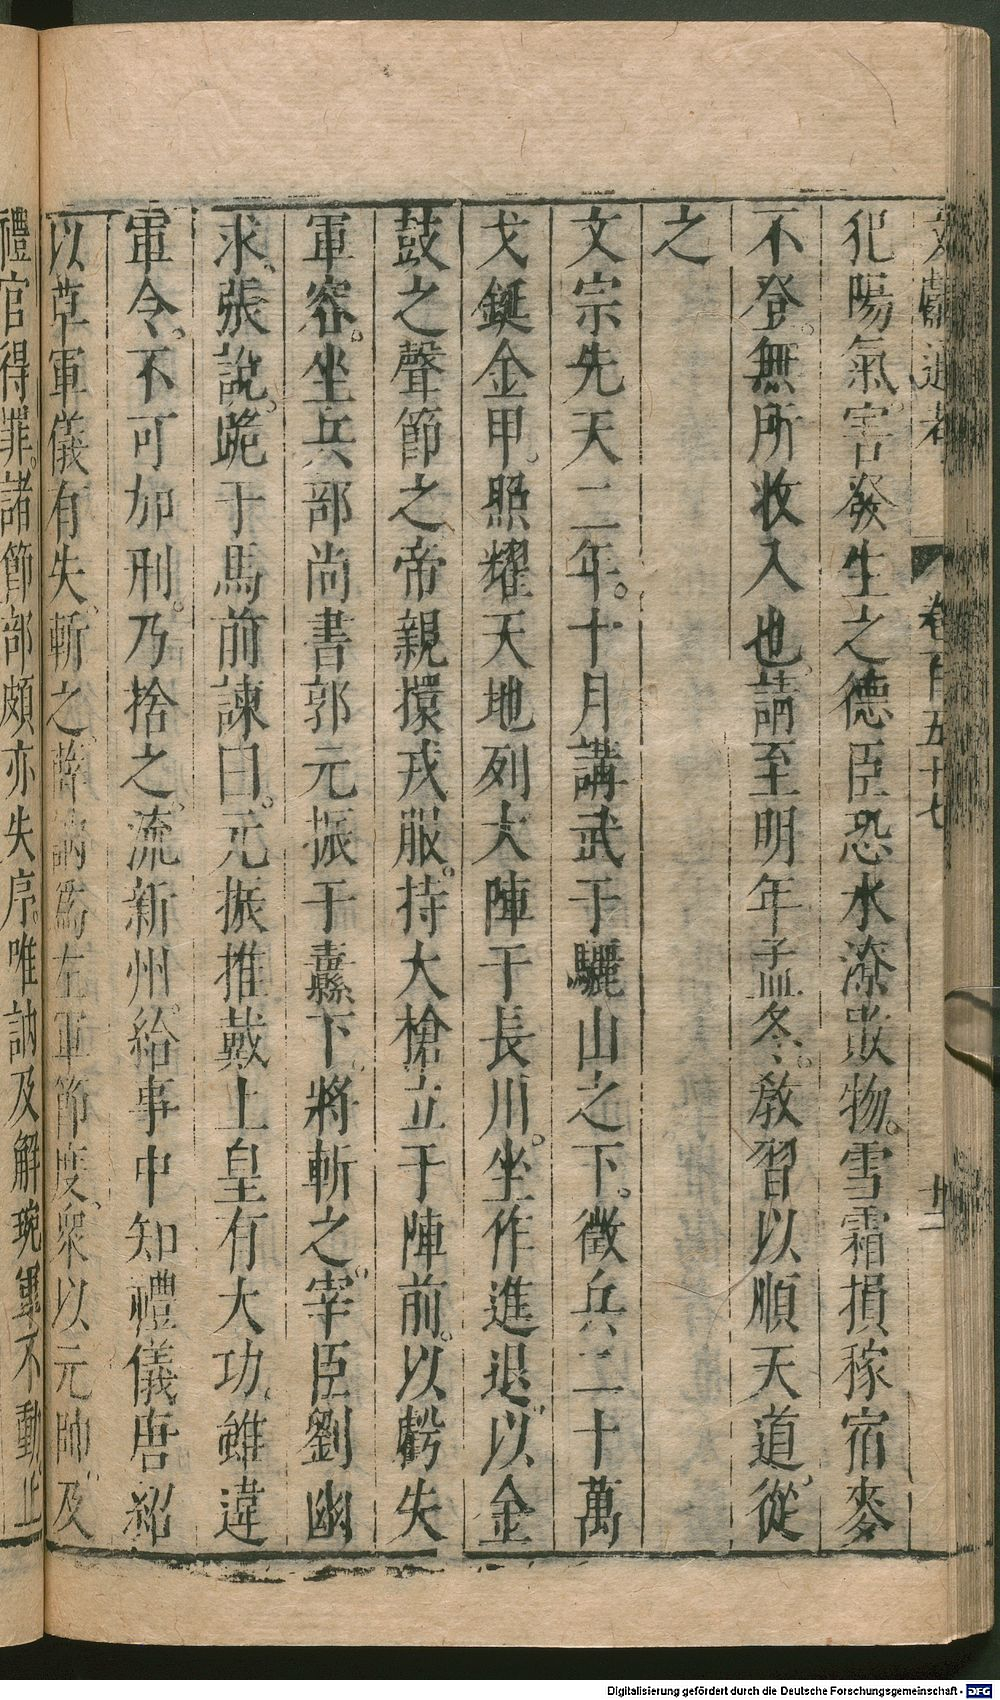 文獻通考 卷百五十七 十二
犯陽氣害發生之德臣恐水潦敗物雪霜損稼宿麥
不登無所收入也請至明年孟冬教習以順天道從
之
文宗先天二年十月講武于驪山之下徵兵二十萬
戈鋋金甲照耀天地列大陣于長川坐作進退以金
鼓之聲節之帝親擐戎服持大槍立于陣前以虧失
軍容坐兵部尚書郭元振于纛下將斬之宰臣劉幽
求張說跪于馬前諫曰元振推戴上皇有大功雖違
軍令不可加刑乃捨之流新州給事中知禮儀唐紹
以草軍儀有失斬之薛訥爲左軍節度衆以元帥及
禮官得罪諸節部頗亦失序唯訥及解琬軍不動止
Digitalisierung gefördert durch die Deutsche Forschungsgemeinschaft - DFG